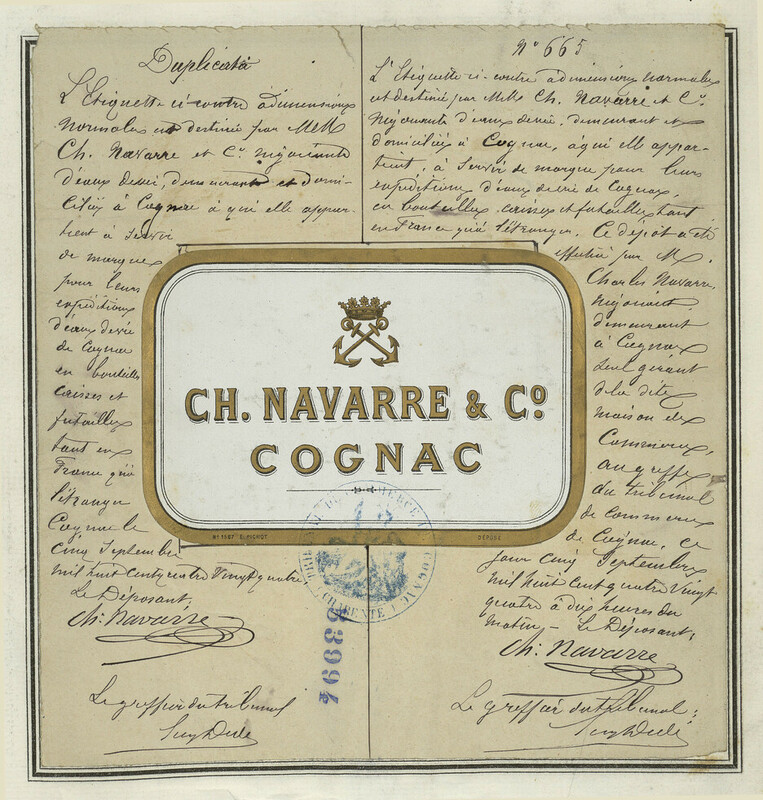 Duplicata
L'Etiquette ci-contre à dimensions
normales est destinée par MM
Ch. Navarre et Cie négociants
d'eaux devie, demeurants et domi-
ciliés à Cognac à qui elle appar-
tient à servir
de marque
pour leurs
expéditions
d'eaux devie
de Cognac
en bouteilles
caisses et
futailles
tant en
France qu'à
l'étranger
Cognac le
cinq Septembre
mil huit cent quatre vingt quatre
Le Déposant,
Ch. Navarre
Le greffier du tribunal
N° 665
L'Etiquette ci-contre à dimensions normales
est destinée par MM Ch. Navarre et Cie
Négociants d'eaux devie, demeurant et
domiciliés à Cognac, à qui elle appar-
tient, à servir de marque pour leurs
expéditions d'eaux de vie de Cognac,
en bouteilles, caisses et futailles tant
en France qu'à l'étranger. Ce dépôt a été
effectué par M.
Charles Navarre,
négociant,
demeurant
à Cognac
seul gérant
de la dite
maison de
Commerce,
au greffe
du tribunal
de commerce
de Cognac, ce
jour cinq Septembre
mil huit cent quatre vingt
quatre à dix heures du
matin – Le Déposant,
Ch. Navarre
Le greffier du tribunal:
CH. NAVARRE & Cº
COGNAC
Nº 1987 E. PICHOT
DÉPOSÉ
TRIBUNAL DE COMMERCE COGNAC
CHARENTE